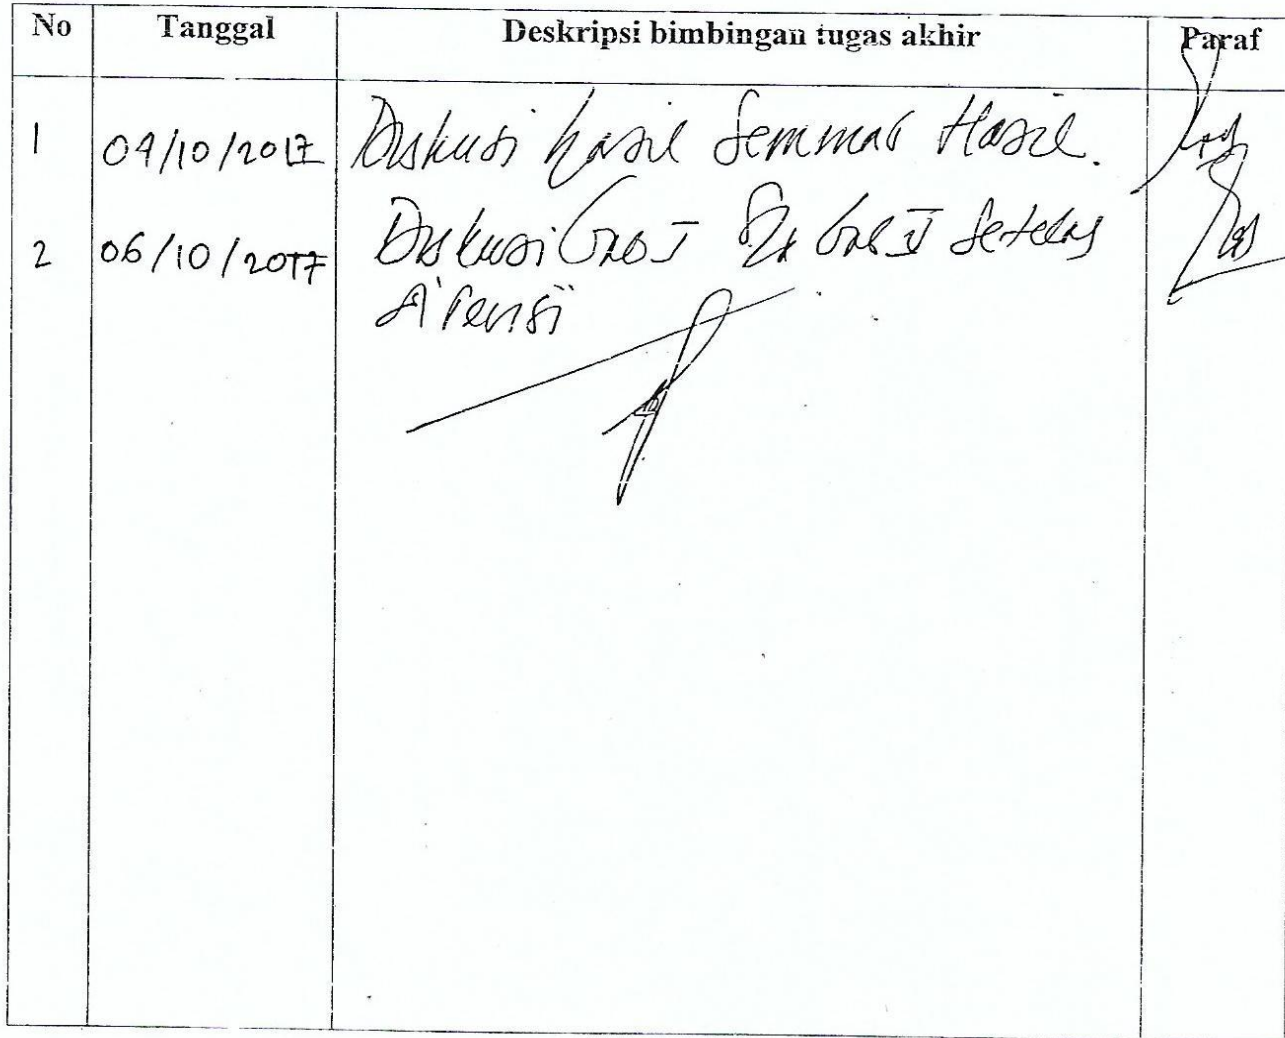 No Tanggal Deskripsi bimbingan tugas akhir Paraf
1 04/10/2017 Diskusi hasil Seminar Hasil.
2 06/10/2017 Diskusi Bab I Bab V Setelah
direvisi